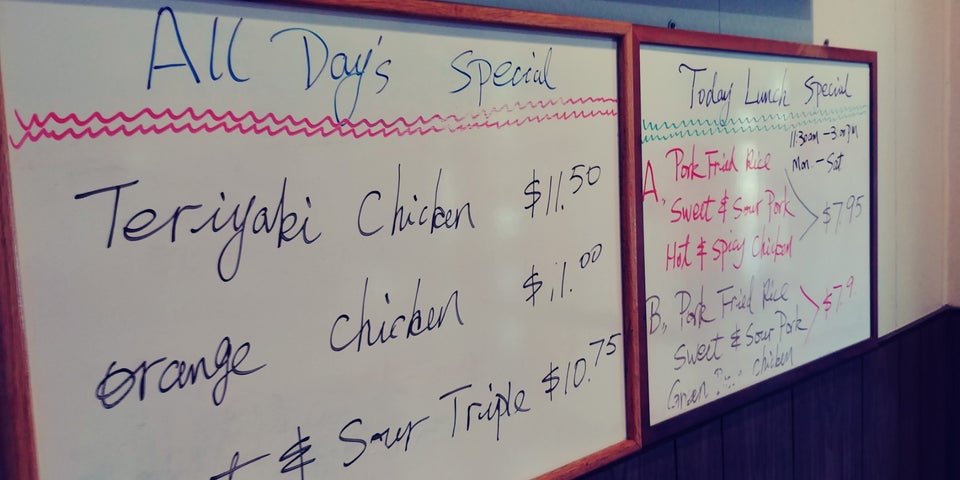 All Day's Special
Teriyaki Chicken $11.50
orange chicken $11.00
& Sour Triple $10.75
Today Lunch Special
11:30am - 3:00pm
Mon - Sat
A. Pork Fried Rice
Sweet & Sour Pork $7.95
Hot & Spicy Chicken
B. Pork Fried Rice $7.9
Sweet & Sour Pork
Green chicken